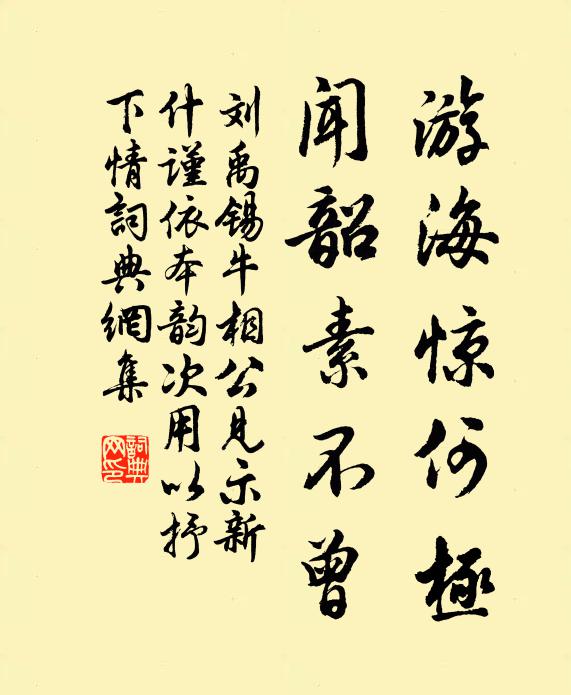 游海惊何極
闻韶素不曾
刘禹锡牛相公見示新
什谨依本韵次用以抒
下情詞典網集
詞典
网印